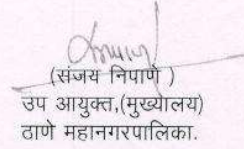 (संजय निपाणे )
उप आयुक्त,(मुख्यालय)
ठाणे महानगरपालिका.